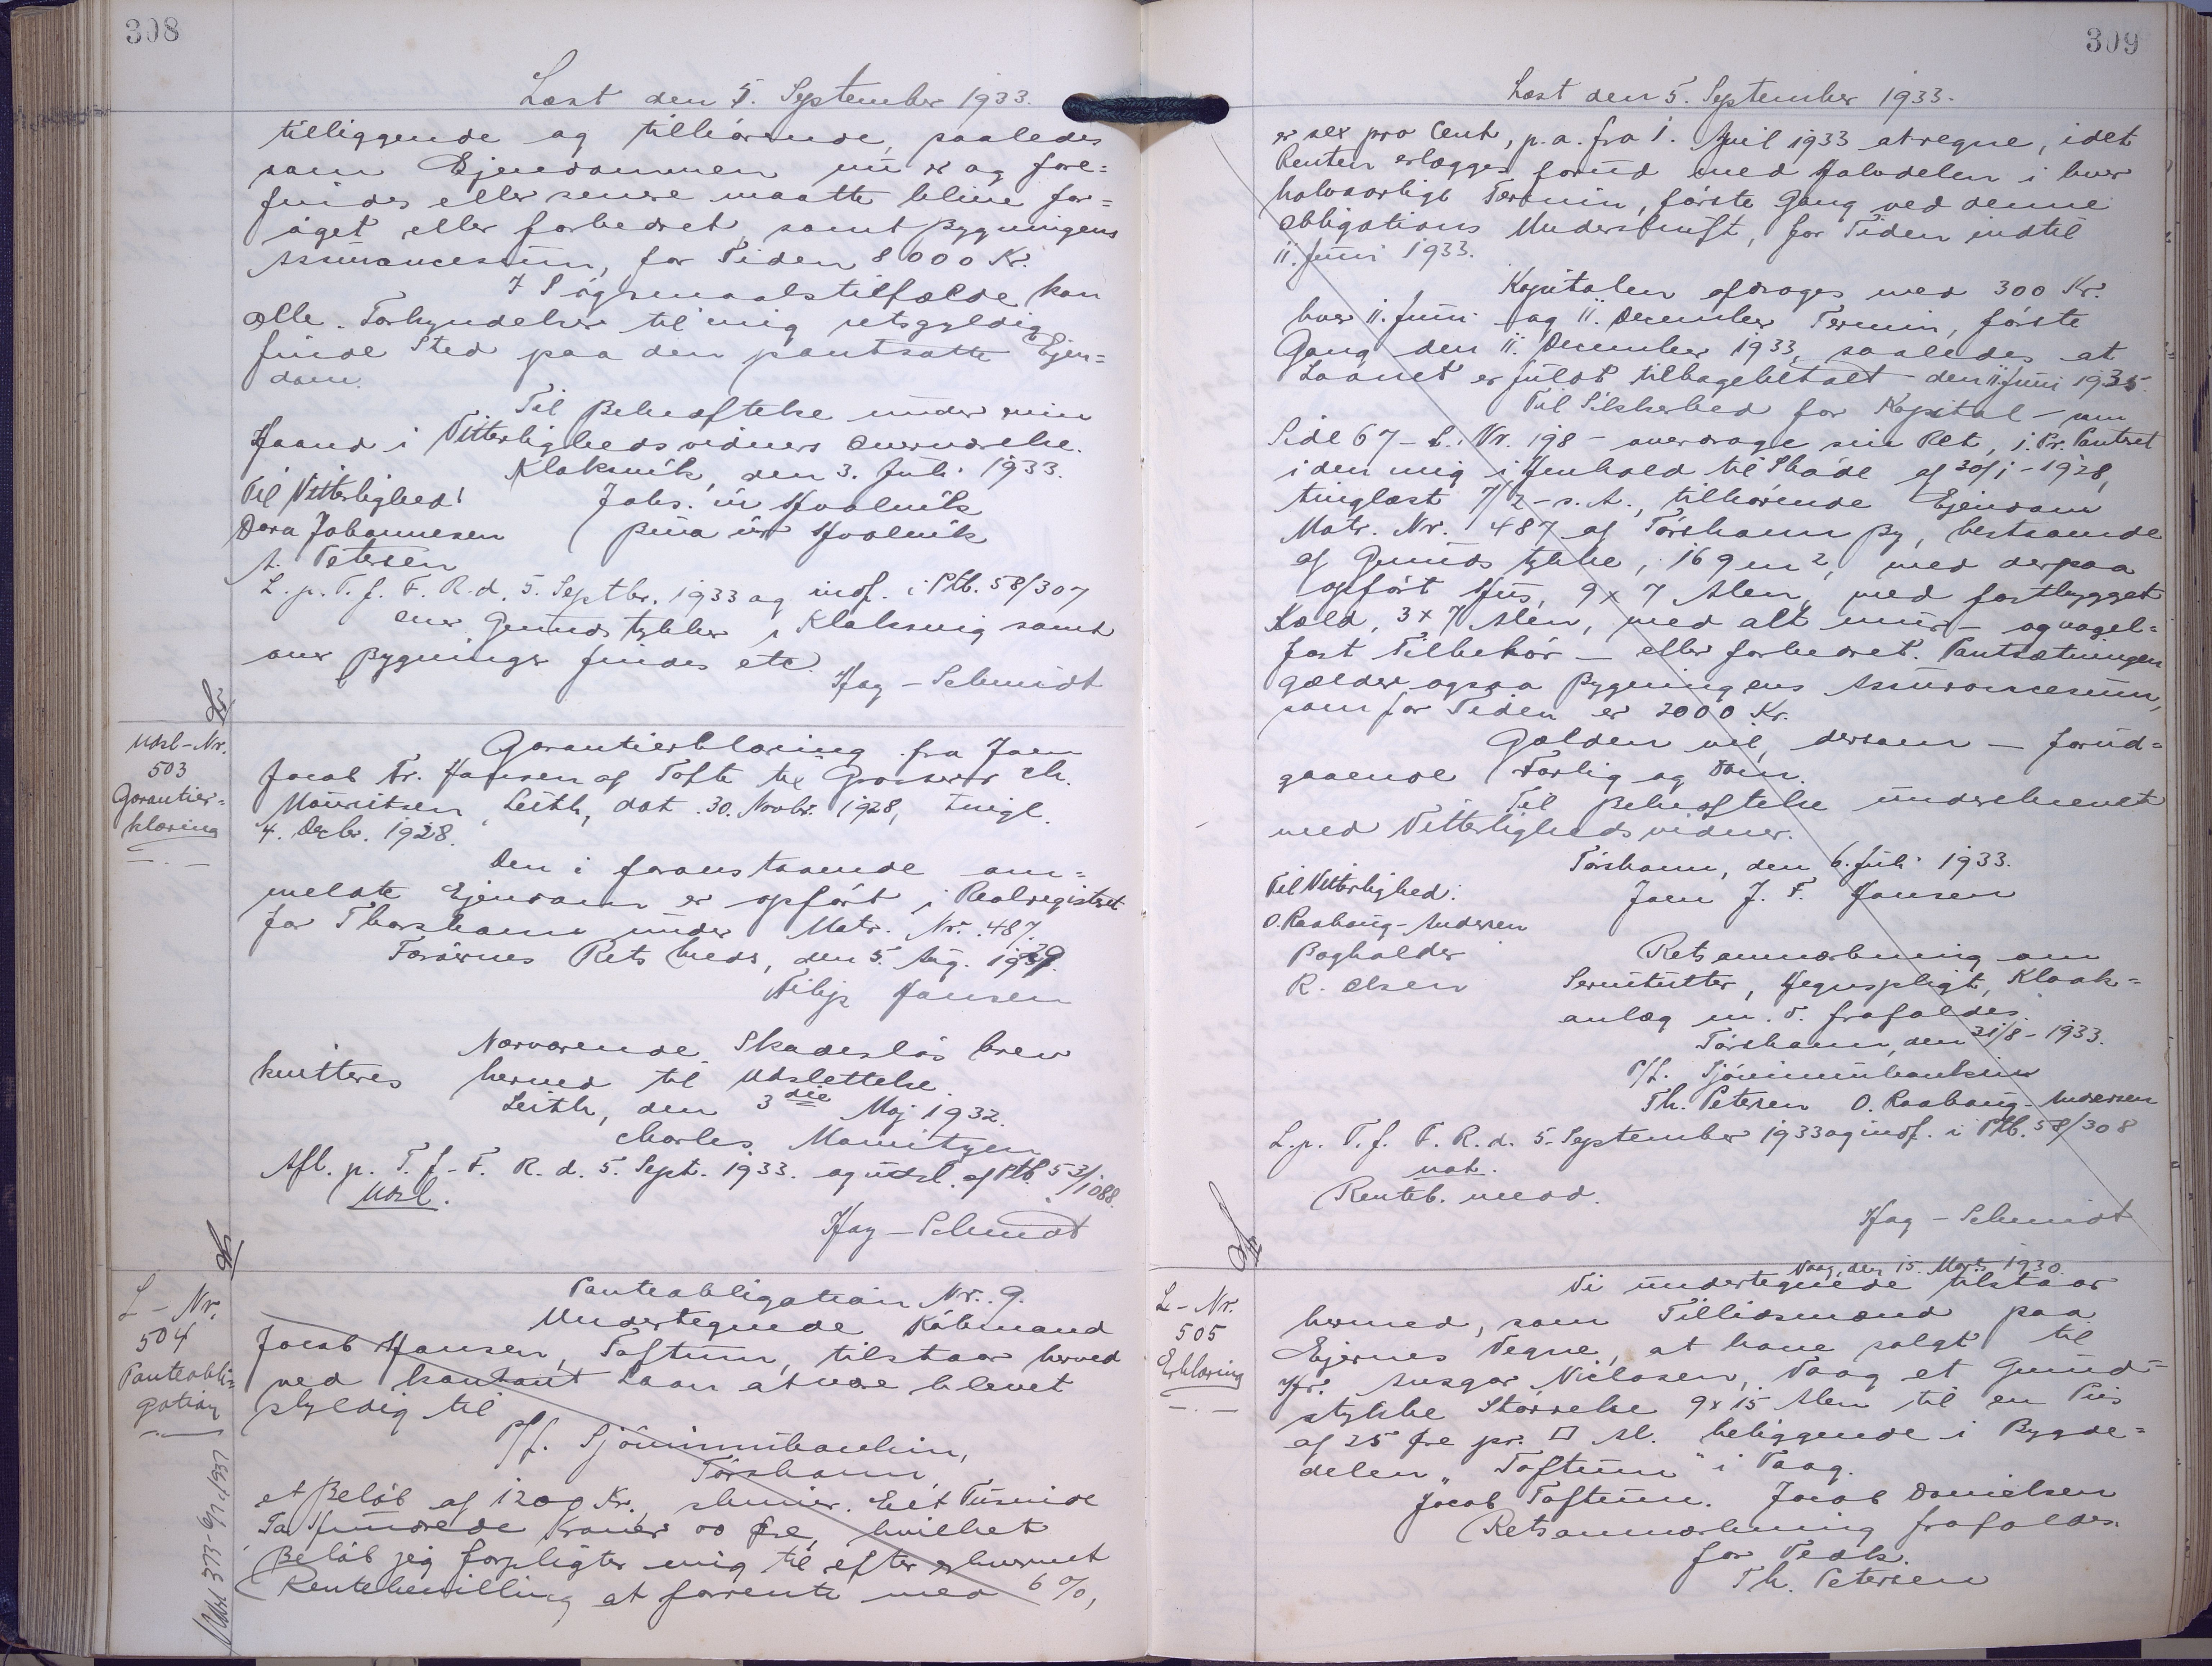 308
Læst den 5. September 1933.
tilliggende og tilhørende, saaledes
som Ejendommen nu er og fore=
findes eller senere maatte blive for=
øget eller forbedret, samt Bygningens
Assurancesum, for Tiden 8000 Kr.
I Søgsmaalstilfælde kan
alle Forkyndelser til mig retsgyldig
finde Sted paa den pantsatte Ejen=
dom.
Til Bekræftelse under min
Haand i Vitterlighedsvidners Overværelse.
Klaksvík, den 3. Juli 1933.
Til Vitterlighed! Johs. úr Hvalvík
Dora Johannesen Bina úr Hvalvík
A. Petersen
L. p. T. f. F. R. d. 5. Septbr. 1933 og indf. i Ptb. 58/307
Øver Grundstykker i Klaksvig samt
over Bygninger findes etc.
Hag-Schmidt
Udsl-Nr.
503
Garantier=
klæring
Garantierklæring fra Joen
Jacob Fr. Hansen af Tofte til Grosserer Ch.
Mouritsen, Leith, dat. 30. Novbr. 1928, tingl.
4. Decbr. 1928.
Den i foranstaaende an=
meldte Ejendom er opført i Realregistret
for Thorshavn under Matr. Nr. 487.
Færøernes Retskreds, den 5. Aug.
Filip Hansen
Nærværende Skadesløsbrev
kvitteres herved til Udslettelse.
Leith, den 3die Maj 1932.
Charles Mouritzen
Afl. p. T. f. F. R. d. 5. Sept. 1933. og udsl. af Ptb. 53/1088.
Udsl.
Hag-Schmidt
L-Nr.
504
Panteobli=
gation
Udsl 373-6/9.1937
Panteobligation Nr. 9.
Undertegnede Købmand
Jacob Hansen, Toftum, tilstaar herved
ved kontant Laan at være blevet
skyldig til
P/f. Sjóvinnubankin,
Tórshavn,
et Beløb af 1200 Kr., skriver Eet Tusinde
To Hundrede Kroner 00 Øre, hvilket
Beløb jeg forpligter mig til efter erhvervet
Rentebevilling at forrente med 6 %,
309
Læst den 5. September 1933.
er sex pro Cent, p. a. fra 1. April 1933 at regne, idet
Renten erlægges forud med Halvdelen i hver
halvaarligt Termin, første Gang ved denne
Obligations Underskrift, for Tiden indtil
11. Juni 1933.
Kapitalen afdrages med 300 Kr.
hver 11. Juni og 11. December Termin, første
Gang den 11. December 1933, saaledes at
Laanet er fuldt tilbagebetalt den 11 Juni 1935.
Til Sikkerhed for Kapital - som
Side 67 - L. Nr. 198 - overdrage sin Ret, 1. Pr. Pantret
i den mig i Henhold til Skøde af 30/1-1928,
tinglæst 7/2 - s. A., tilhørende Ejendom
Matr. Nr. 487 af Tórshavn By, bestaaende
af Grundstykke, 169 m2, med derpaa
opført Hus, 9 x 7 Alen, med fastbygget
Kold, 3 x 7 Alen, med alt mur- og nagel=
fast Tilbehør - eller forbedret. Pantsætningen
gælder ogsaa Bygningens Assurancesum,
som for Tiden er 2000 Kr.
Gælden vil, dersom - forud=
gaaende Forlig og Dom.
Til Bekræftelse underskrevet
med Vitterlighedsvidner.
Tórshavn, den 6. Juli 1933.
Til Vitterlighed: Joen J. F. Hansen
O. Raabaug-Andersen
Bogholder Retsanmærkning om
R. Olsen Servitutter, Hegnspligt, Kloak=
anlæg m. v. frafaldes.
Tórshavn, den 31/8-1933.
P/f. Sjóvinnubankin
Th. Petersen O. Raabaug-Andersen
L. p. T. f. F. R. d. 5. September 1933 og indf. i Ptb. 58/308
not.
Renteb. medd.
Hag-Schmidt
L-Nr.
505
Erklæring
Vaag, den 15. Marts 1930.
Vi undertegnede tilstaar
hermed, som Tillidsmænd paa
Ejernes Vegne, at have solgt til
Hr. Ansgar Niclasen, Vaag et Grund=
stykke Størrelse 9 x 15 Alen til en Pris
af 25 Øre pr. □ Al. beliggende i Bygde=
delen „Toftum“ i Vaag.
Jacob Toftum. Jacob Danielsen
Retsanmærkning frafaldes.
for Vedk.
Th. Petersen